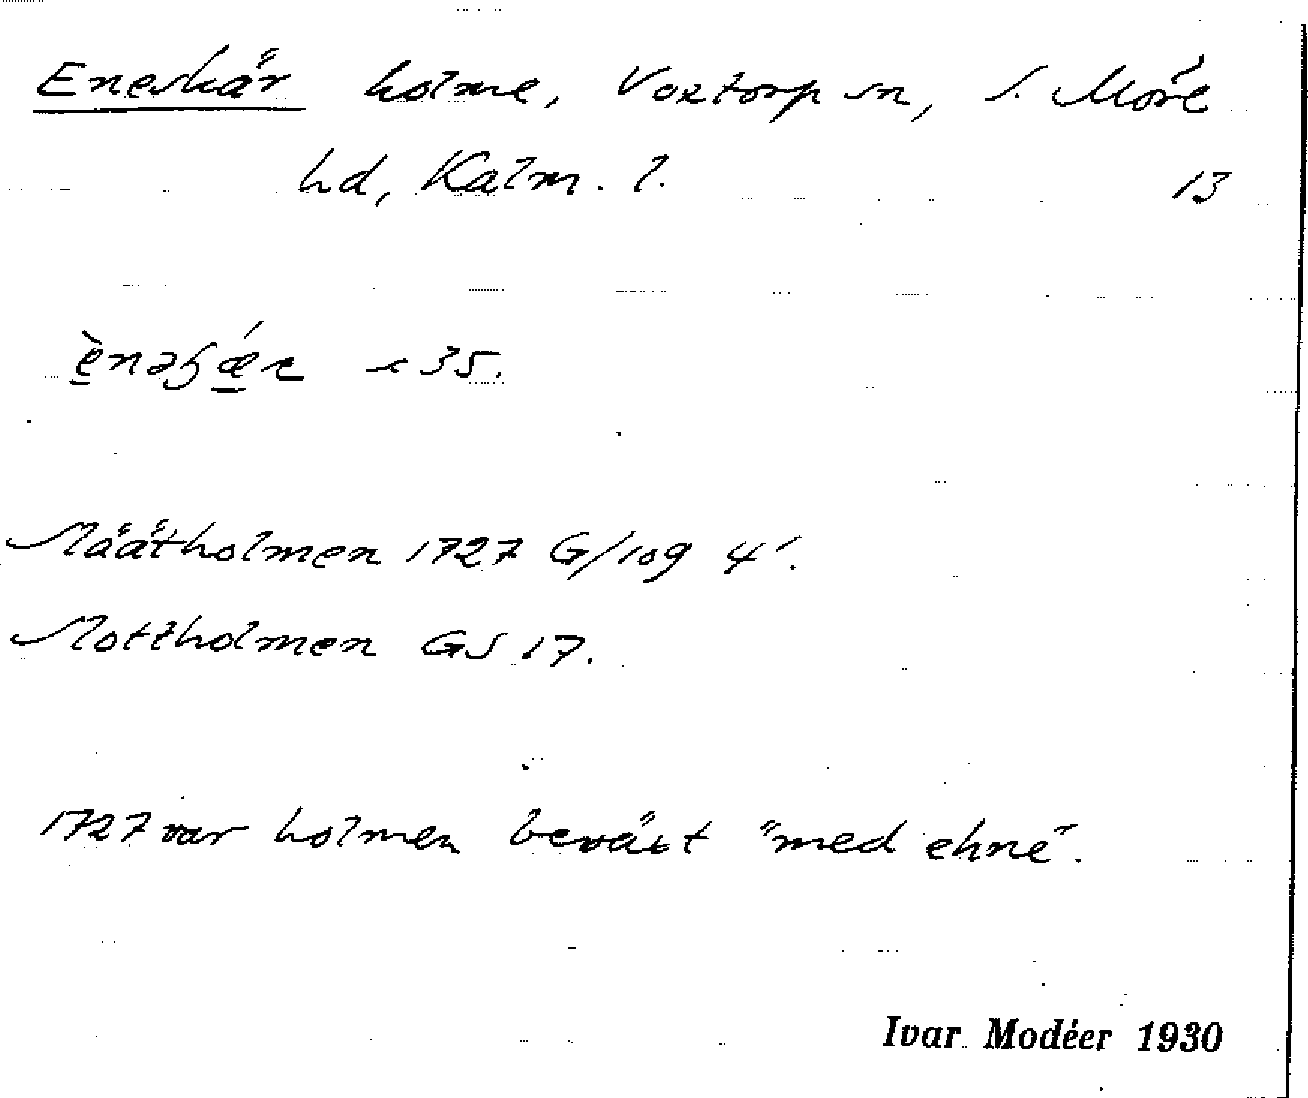 Eneskär holme, Voxtorp sn, S. Möre
hd, Kalm. l. 13
35.
Määtholmen 1727 G/109 4'.
Mottholmen GS 17.
1727 var holmen beväxt "med ehne".
Ivar Modéer 1930